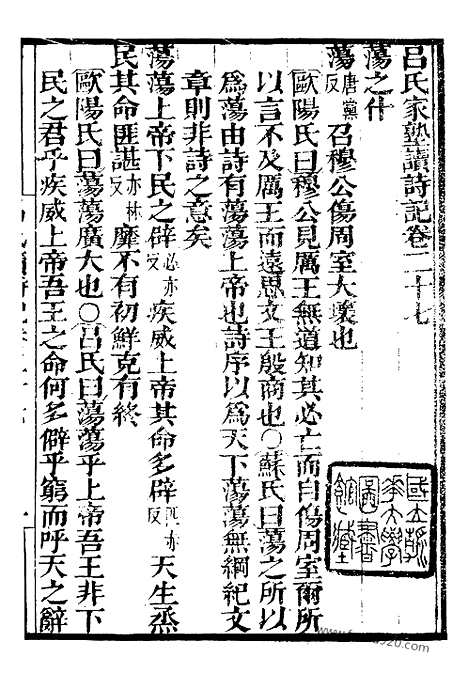 呂氏家塾讀詩記卷二十七
蕩之什
蕩唐黨反召穆公傷周室大壞也
歐陽氏曰穆公見厲王無道知其必亡而自傷周室爾所
以言不及厲王而遠思文王殷商也〇蘇氏曰蕩之所以
爲蕩由詩有蕩蕩上帝也詩序以爲天下蕩蕩無綱紀文
章則非詩之意矣
蕩蕩上帝下民之辟必亦反疾威上帝其命多辟匹亦反天生烝
民其命匪諶市林反靡不有初鮮克有終
歐陽氏曰蕩蕩廣大也〇呂氏曰蕩蕩乎上帝吾王非下
民之君乎疾威上帝吾王之命何多僻乎窮而呼天之辭
國立
大學
圖書
館藏